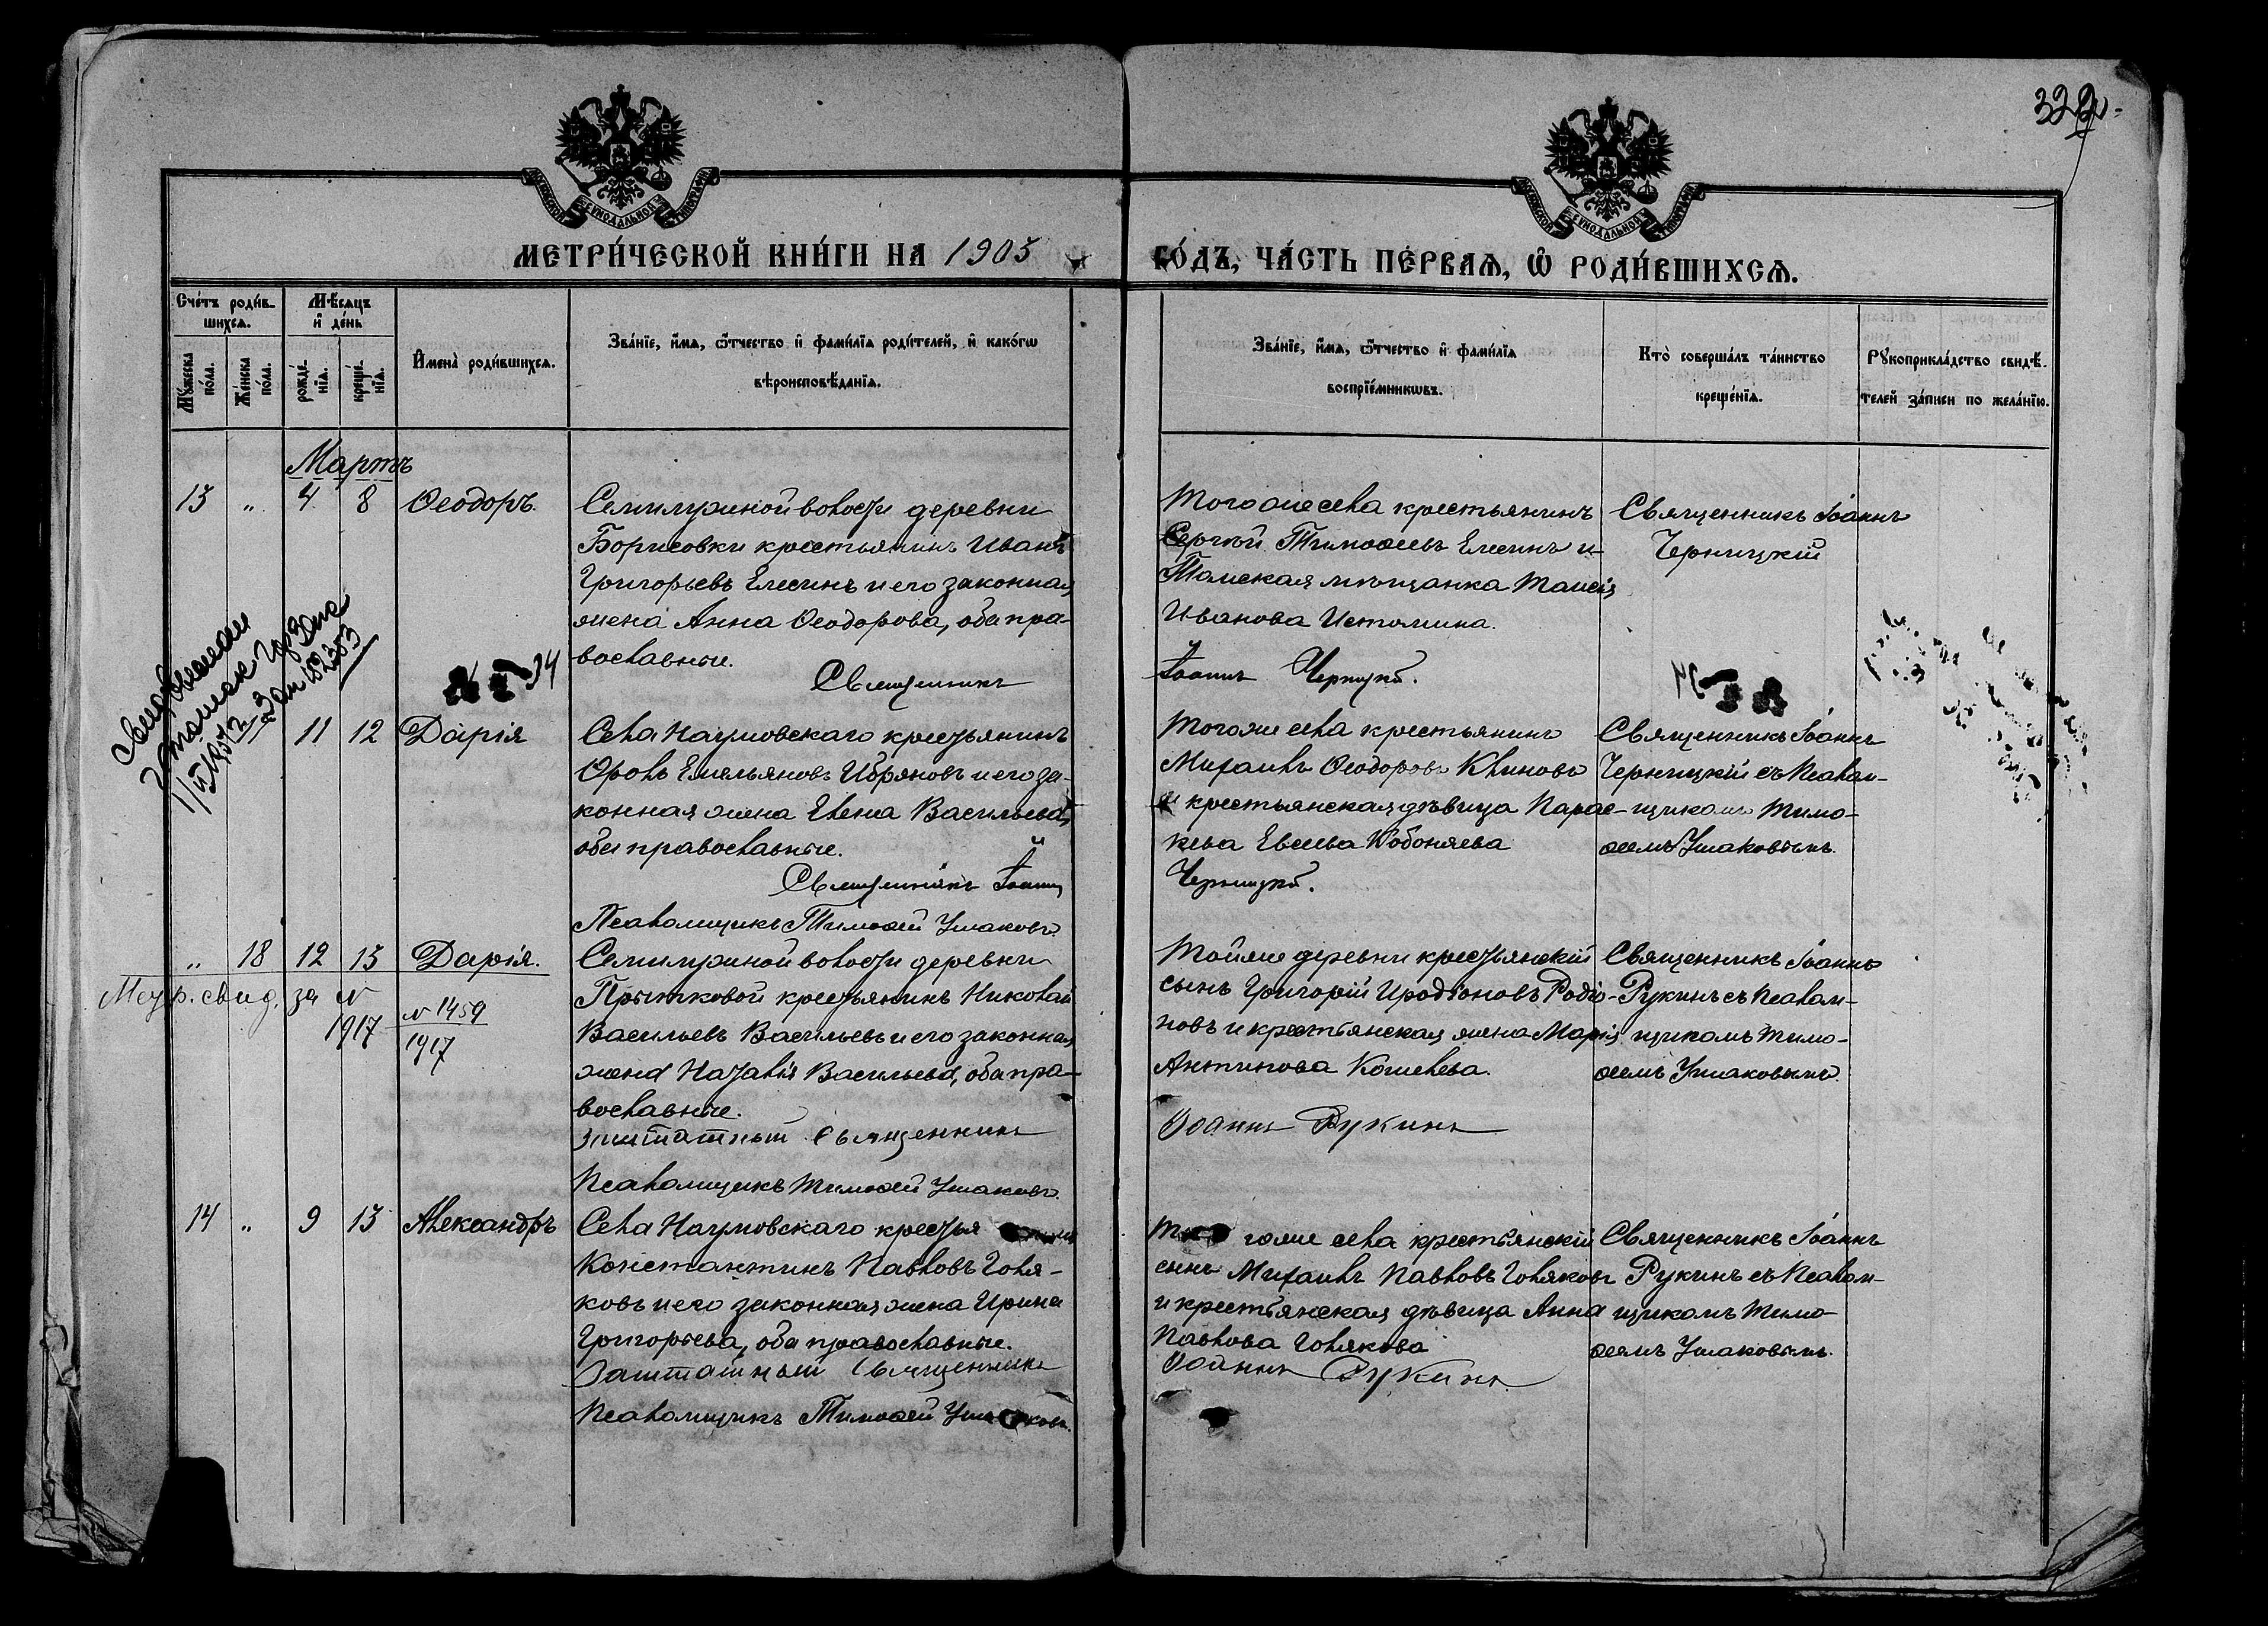 322
МЕТРИ́ЧЕСКОЙ КНИ́ГИ НА 1903
ГО́ДЪ, ЧА́СТЬ ПЕ́РВАѦ, Ѡ҆ РОДИ́ВШИХСѦ.
Сче́тъ роди́в-
шихсѧ.
Мѣ́сѧцъ
и҆ де́нь
Мꙋ́жеска по́ла.
Же́нска по́ла.
рожде́-
нїѧ.
креще́-
нїѧ.
И҆мена̀ роди́вшихсѧ.
Зва́нїе, и҆́мѧ, ѻ҆́тчество и҆ фами́лїѧ роди́телей, и҆ како́гѡ
вѣроисповѣ́данїѧ.
Зва́нїе, и҆́мѧ, ѻ҆́тчество и҆ фами́лїѧ
воспрїе́мникѡвъ.
Кто̀ соверша́лъ та́инство
креще́нїѧ.
Рꙋкоприкла́дство свидѣ́-
телей за́писи по жела́нїю.
Мартъ
13 " 4 8 Ѳеодоръ.
Семилужной волости деревни
Борисовки крестьянинъ Иванъ
Григорьевъ Елесинъ и его законная
жена Анна Ѳеодорова, оба пра-
вославные.
Священникъ
Тогоже села крестьянинъ
Сергѣй Тимоѳеевъ Елесинъ и
Томская мѣщанка Таисія
Иванова Истомина.
Іоаннъ Черницкій.
Священникъ Іоаннъ
Черницкій
34
11 12 Дарія
Села Наумовскаго крестьянинъ
Фролъ Емельяновъ Ибряновъ и его за-
конная жена Елена Васильева,
оба православные.
Священникъ Іоаннъ
Псаломщикъ Тимоѳей Ушаковъ
Тогоже села крестьянинъ
Михаилъ Ѳеодоровъ Климовъ
и крестьянская дѣвица Парас-
кева Евсеева
Черницкій.
Священникъ Іоаннъ
Черницкій съ Псалом-
щикомъ Тимо-
ѳеемъ Ушаковымъ.
" 18 12 13 Дарія.
Метр. свид. за №
1917
№ 1459
1917
Семилужной волости деревни
Прытковой крестьянинъ Николай
Васильевъ Васильевъ и его законная
жена Наталія Васильева, оба пра-
вославные.
Заштатный Священникъ
Псаломщикъ Тимоѳей Ушаковъ.
Тойже деревни крестьянскій
сынъ Григорій Иродіоновъ Родіо-
новъ и крестьянская жена Марія
Антипова Кошелева.
Іоаннъ Рукинъ
Священникъ Іоаннъ
Рукинъ съ Псалом-
щикомъ Тимо-
ѳеемъ Ушаковымъ.
14 " 9 13 Александръ
Села Наумовскаго крестья
Константинъ Павловъ Голя-
ковъ и его законная жена Ирина
Григорьева, оба православные.
Заштатный Священникъ
Псаломщикъ Тимоѳей Ушаковъ.
гоже села крестьянскій
сынъ Михаилъ Павловъ Голяковъ
и крестьянская дѣвица Анна
Павлова Голякова
Іоаннъ Рукинъ
Священникъ Іоаннъ
Рукинъ съ Псалом-
щикомъ Тимо-
ѳеемъ Ушаковымъ.